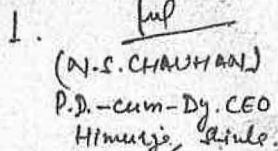 1.
(N.S. CHAUHAN)
P.D.-cum-Dy. CEO
Himurja, Shimla.